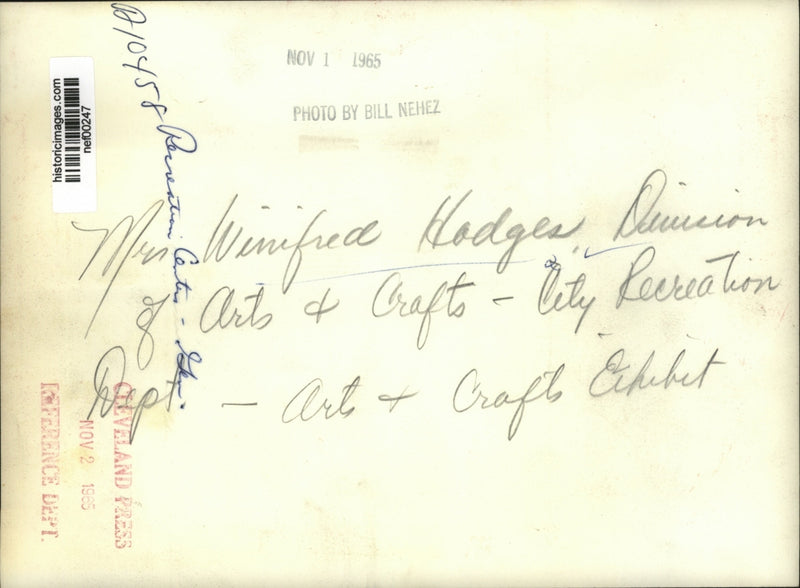 NOV 1 1965
PHOTO BY BILL NEHEZ
historicimages.com
nef00247
A10458 Recreation Center -
Mrs Winifred Hodges, Division
of Arts & Crafts - City Recreation
Dept. - Arts & Crafts Exhibit
CLEVELAND PRESS
NOV 2 1965
REFERENCE DEPT.